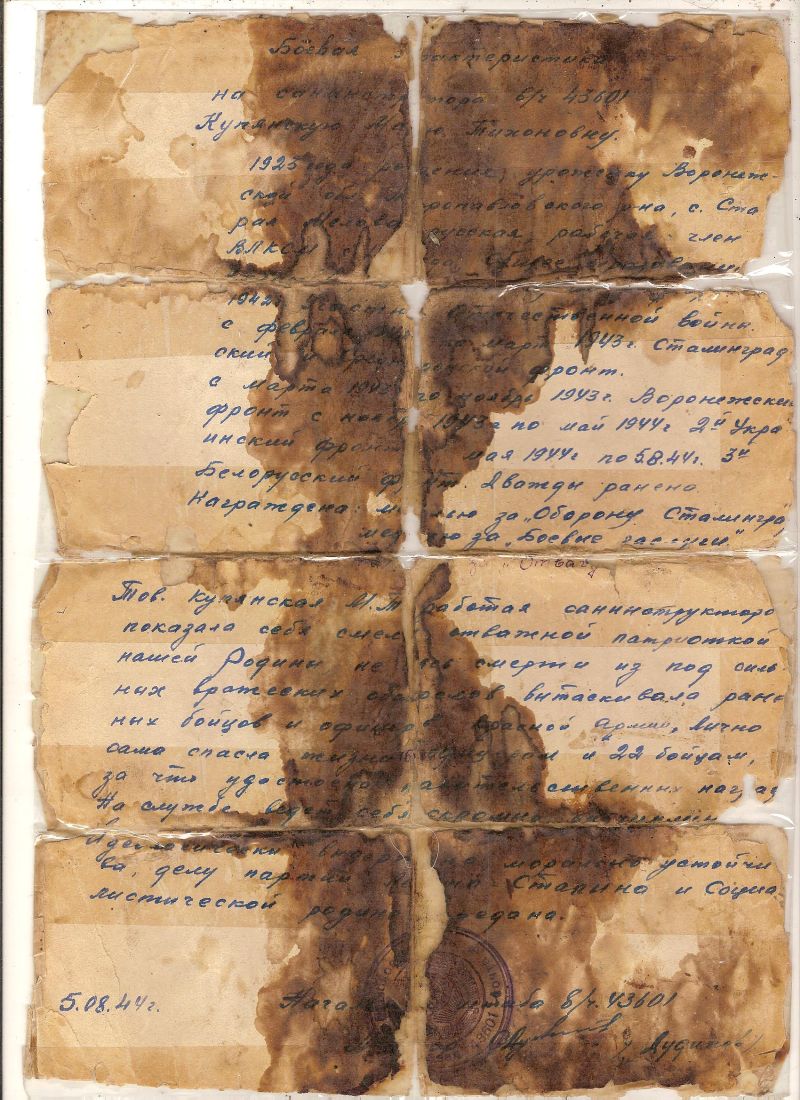 Боевая характеристика
на санинструктора в/ч 43601
Купянскую Тихоновну.
1925 года рождения, уроженку Воронеж-
ской р-на, с. Ста
русская, рабочая член
ВЛКСМ с
1942. Участник Отечественной войны.
с февраля по март 1943г. Сталинград
ский и фронт.
с марта 1943 по ноябрь 1943г. Воронежский
фронт с ноября 1943г по май 1944г 2й Укра
инский фронт мая 1944г по 5.8.44г. 3й
Белорусский фронт. Дважды ранена
Награждена: медалью за „Оборону Сталинград
медалью за „Боевые заслуги"
„Отвагу
Тов. Купянская М.Т работая санинструкторо
показала себя смелой отважной патриоткой
нашей Родины не смерти из под силь
ных вражеских обстрелов вытаскивала ране
ных бойцов и офицеров Красной Армии, лично
сама спасла жизнь и 22 бойцам,
за что удостоена правительственных наград
На службе ведет себя скромно
Идеологически выдержана морально устойчи
ва, делу партии Сталина и Социа-
листической родине предана.
5.08.44г. Начальник штаба в/ч. 43601